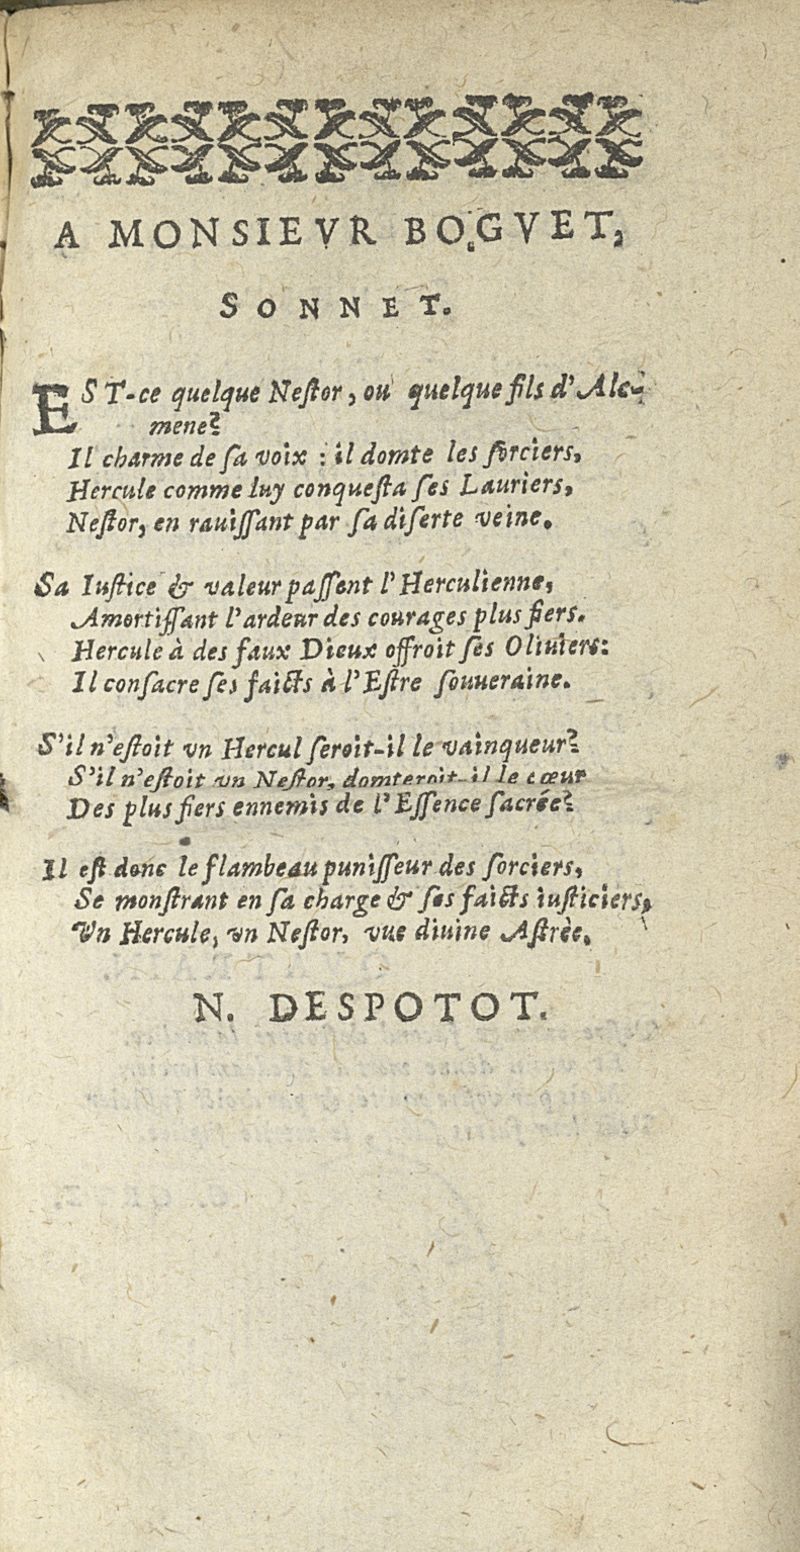 A MONSIEVR BOGVET,
SONNET.
EST-ce quelque Neſtor, ou quelque fils d'Alc-
mene?
Il charme de ſa voix : il domte les ſorciers,
Hercule comme luy conqueſta ſes Lauriers,
Neſtor, en rauiſſant par ſa diſerte veine.
Sa Iuſtice & valeur paſſent l'Herculienne,
Amortiſſant l'ardeur des courages plus fiers.
Hercule à des faux Dieux offroit ſes Oliuiers:
Il conſacre ſes faicts à l'Eſtre ſouueraine.
S'il n'eſtoit vn Hercul ſeroit-il le vainqueur?
S'il n'eſtoit vn Neſtor, domteroit-il le cœur
Des plus fiers ennemis de l'Eſſence ſacrée?
Il eſt donc le flambeau puniſſeur des ſorciers,
Se monſtrant en ſa charge & ſes faicts iuſticiers,
Vn Hercule, vn Neſtor, vue diuine Aſtrèe.
N. DESPOTOT.